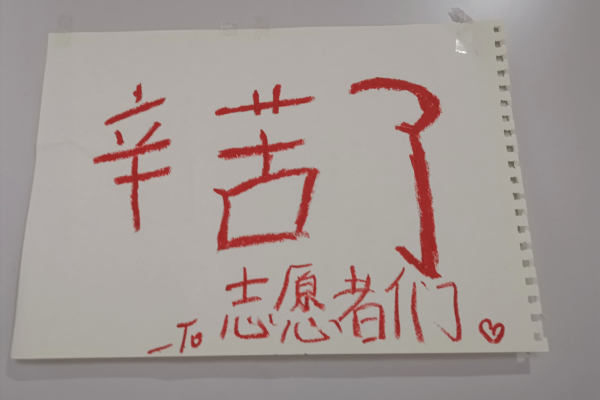 辛苦了
—To 志愿者们